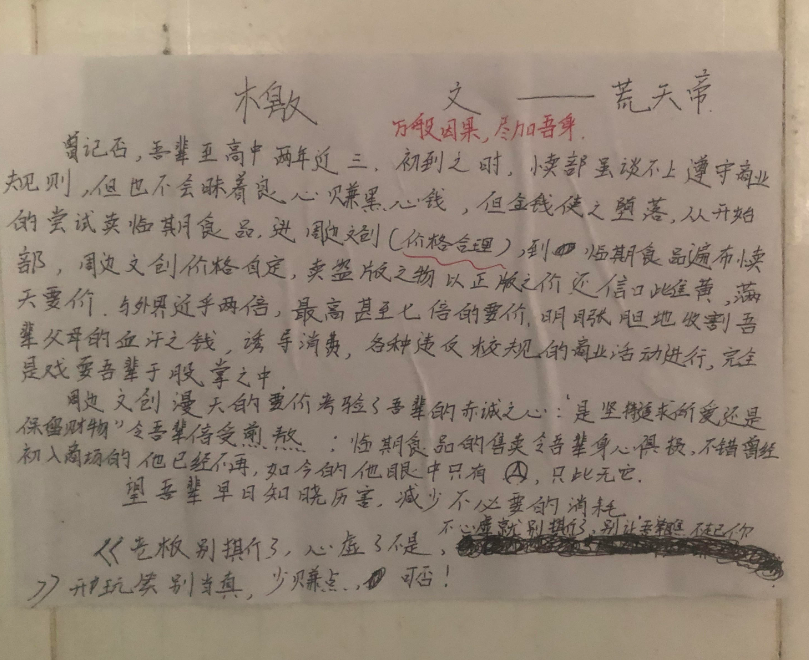 檄 文 —— 荒天帝
万般因果,尽加吾身.
曾记否,吾辈至高中两年近三.初到之时,小卖部虽谈不上遵守商业
规则,但也不会昧着良心赚黑心钱,但金钱使之堕落,从开始
的尝试卖临期食品.进周边文创(价格合理),到临期食品遍布小卖
部,周边文创价格自定,卖盗版之物以正版之价还信口雌黄,满
天要价.与外界近乎两倍,最高甚至七倍的要价.明目张胆地收割吾
辈父母的血汗之钱,诱导消费,各种违反校规的商业活动进行,完全
是戏耍吾辈于股掌之中.
周边文创漫天的要价考验了吾辈的赤诚之心:"是坚持追求所爱还是
保留财物"令吾辈倍受煎熬;临期食品的售卖令吾辈身心俱损,不错曾经
初入商场的他已经不再,如今的他眼中只有,只此无它.
望吾辈早日知晓厉害,减少不必要的消耗.
不心虚就别撕了,别让吾辈瞧不起你
《老板别撕了,心虚了不是,
》开玩笑别当真,少赚点,可否!